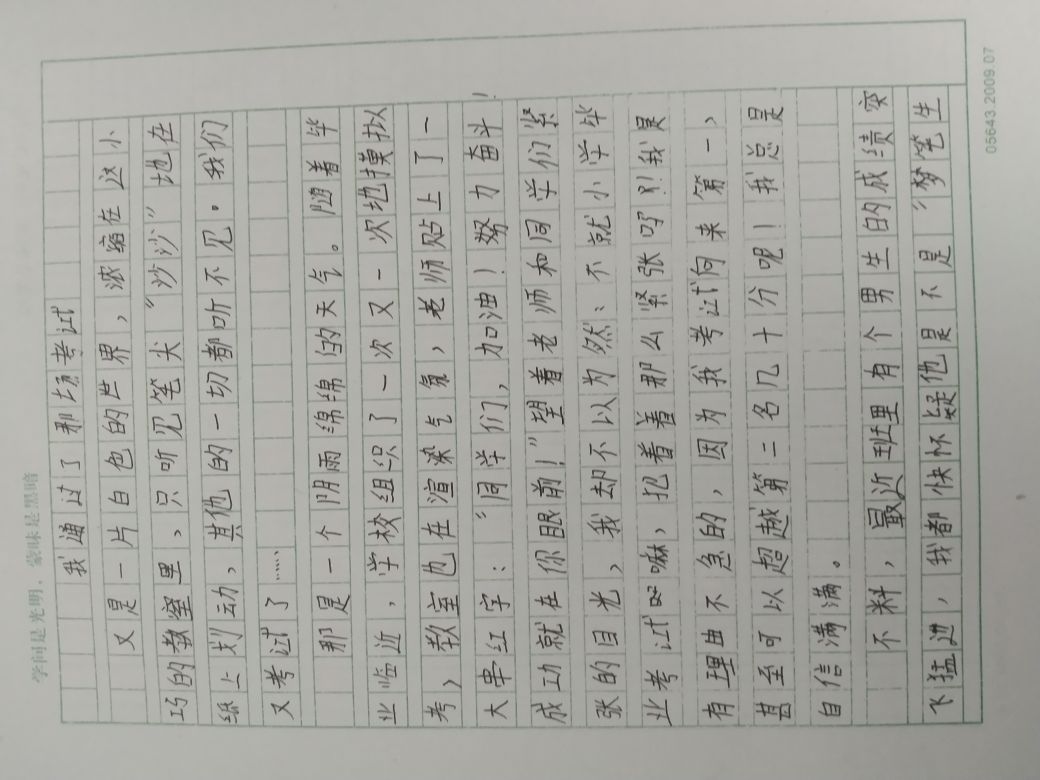 学问是光明，蒙昧是黑暗
我通过了那场考试
又是一片白色的世界，浓缩在这小
巧的教室里，只听见笔尖“沙沙”地在
纸上划动，其他的一切都听不见。我们
又考试了……
那是一个阴雨绵绵的天气。随着毕
业临近，学校组织了一次又一次地摸拟
考，教室也在渲染气氛，老师贴上了一
大串红字：“同学们，加油！努力奋斗！
成功就在你眼前！”望着老师和同学们紧
张的目光，我却不以为然：不就小学毕
业考试嘛，犯着着那么紧张吗？！我是
有理由不急的，因为我考试向来第一，
甚至可以超越第二名几十分呢！我总是
自信满满。
不料，最近班里有个男生的成绩突
飞猛进，我都快怀疑他是不是“梦笔生
05643.2009.07